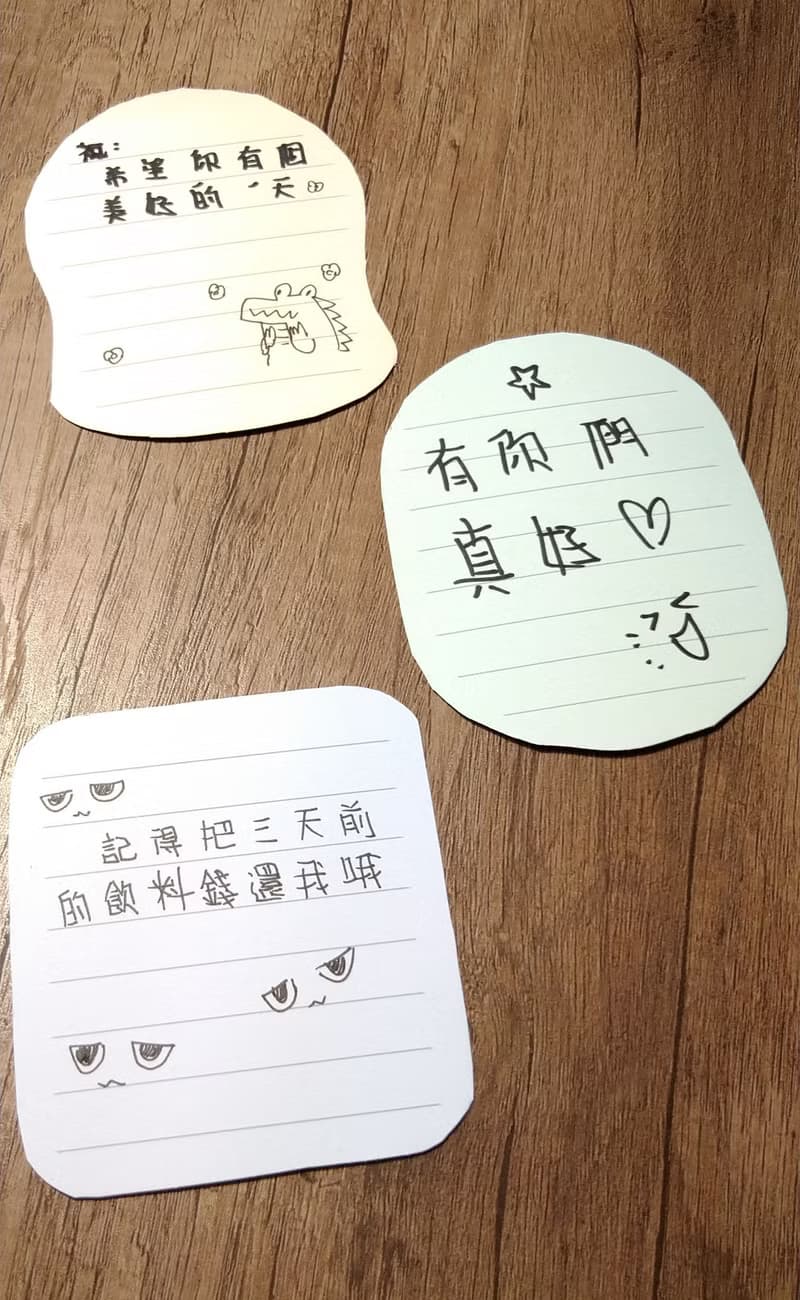 祝:
希望你有個
美好的一天
有你們
真好♡
記得把三天前
的飲料錢還我哦